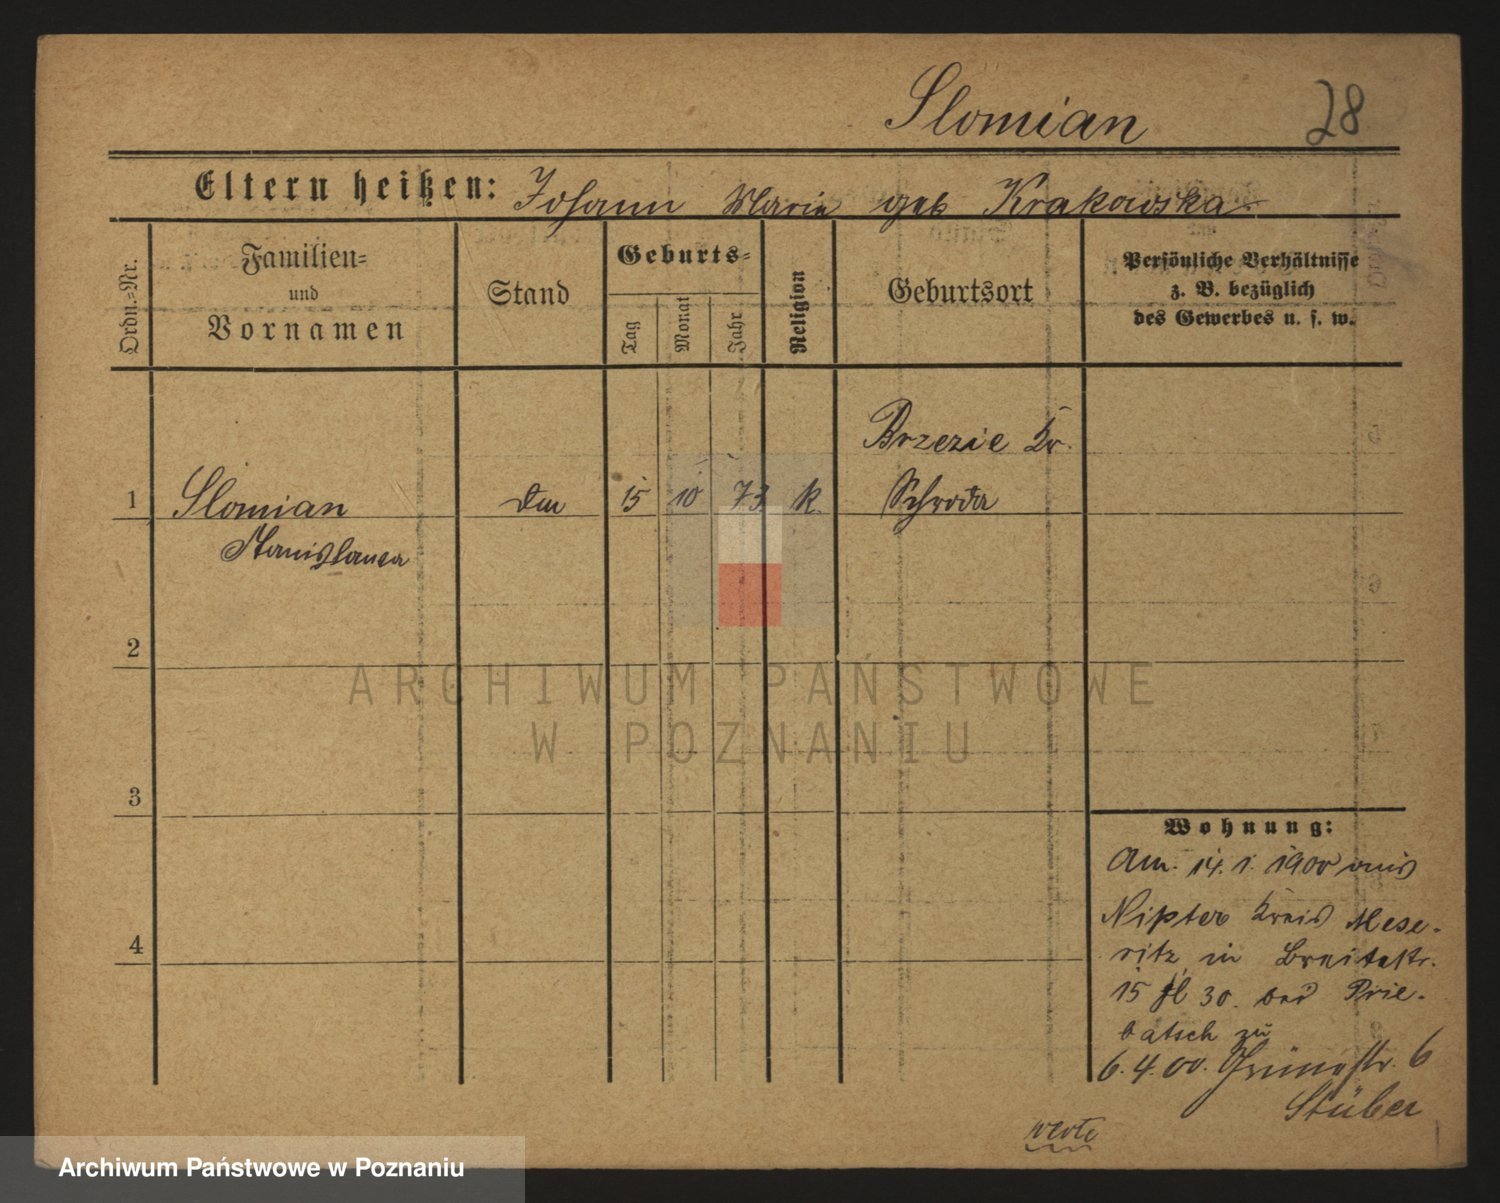 Slomian 28
Eltern heißen: Johann Marie geb Krakowska
Ordn.=Nr.
Familien=
und
Vornamen
Stand
Geburts=
Tag
Monat
Jahr
Religion
Geburtsort
Persönliche Verhältnisse
z. B. bezüglich
des Gewerbes u. s. w.
Brzezie Kr.
1 Slomian 15 10 73 k. Schroda
Stanislawa
2
3
4
Wohnung:
Am. 14. 1. 1900 aus
Nipter Kreis Mese-
ritz in Breitestr.
15 30. bei Prie-
batsch zu
6. 4. 00. Grünestr. 6
Stüber
verte
ARCHIWUM PAŃSTWOWE
W POZNANIU
Archiwum Państwowe w Poznaniu